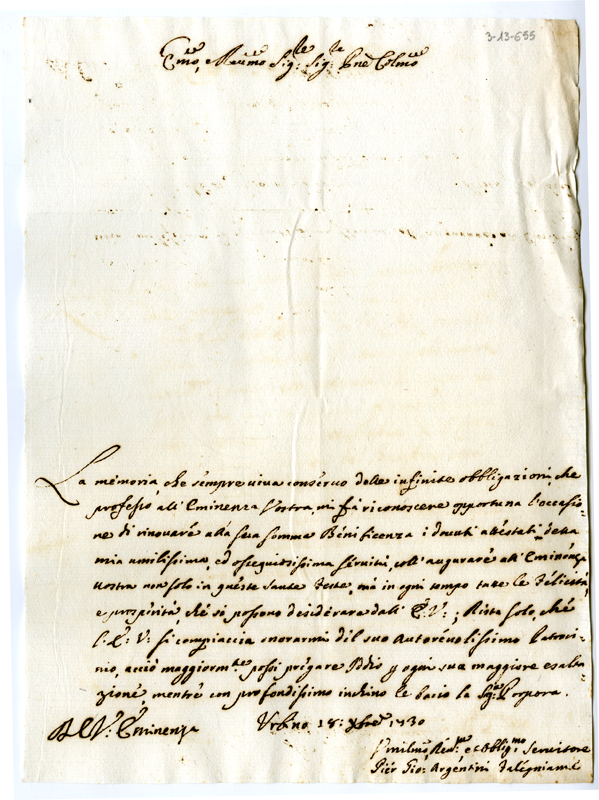 3-13-655
Emo, e Reumo Sig:re Sig:re Pne Colmo
La memoria, che sempre uiua conseruo delle infinite obbligazioni, che
professo all'Eminenza Vostra mi fà riconoscere opportuna l'occasio-
ne di rinouare alla sua somma Beneficenza i douuti attestati della
mia umilissima, ed ossequiosissima seruitù, coll'augurare all'Eminenza
Vostra non solo in queste sante Feste, mà in ogni tempo tutte le Felicità,
e prosperità, che si possono desiderare dall'E: V:; Resta solo, che
l'E: V: si compiaccia onorarmi del suo Autoreuolissimo Patroci-
nio, acciò maggiorm:te possi pregare Iddio p ogni sua maggiore esalta-
zione, mentre con profondissimo inchino le bacio la Sag: Porpora.
Di V: Eminenza Urbino 18: Xbre 1730
Umilmo, Deu:mo et Obblig:mo Seruitore
Pier Gio: Argentini Falegniame